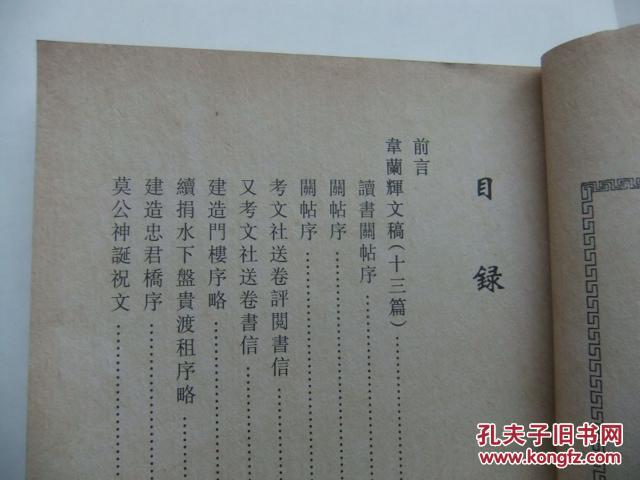 目錄
前言
韋蘭輝文稿（十三篇）…………
讀書關帖序…………
關帖序…………
關帖序…………
考文社送卷評閱書信…………
又考文社送卷書信…………
建造門樓序略…………
續捐水下盤貴渡租序略…………
建造忠君橋序…………
莫公神誕祝文…………
孔夫子旧书网
www.kongfz.com